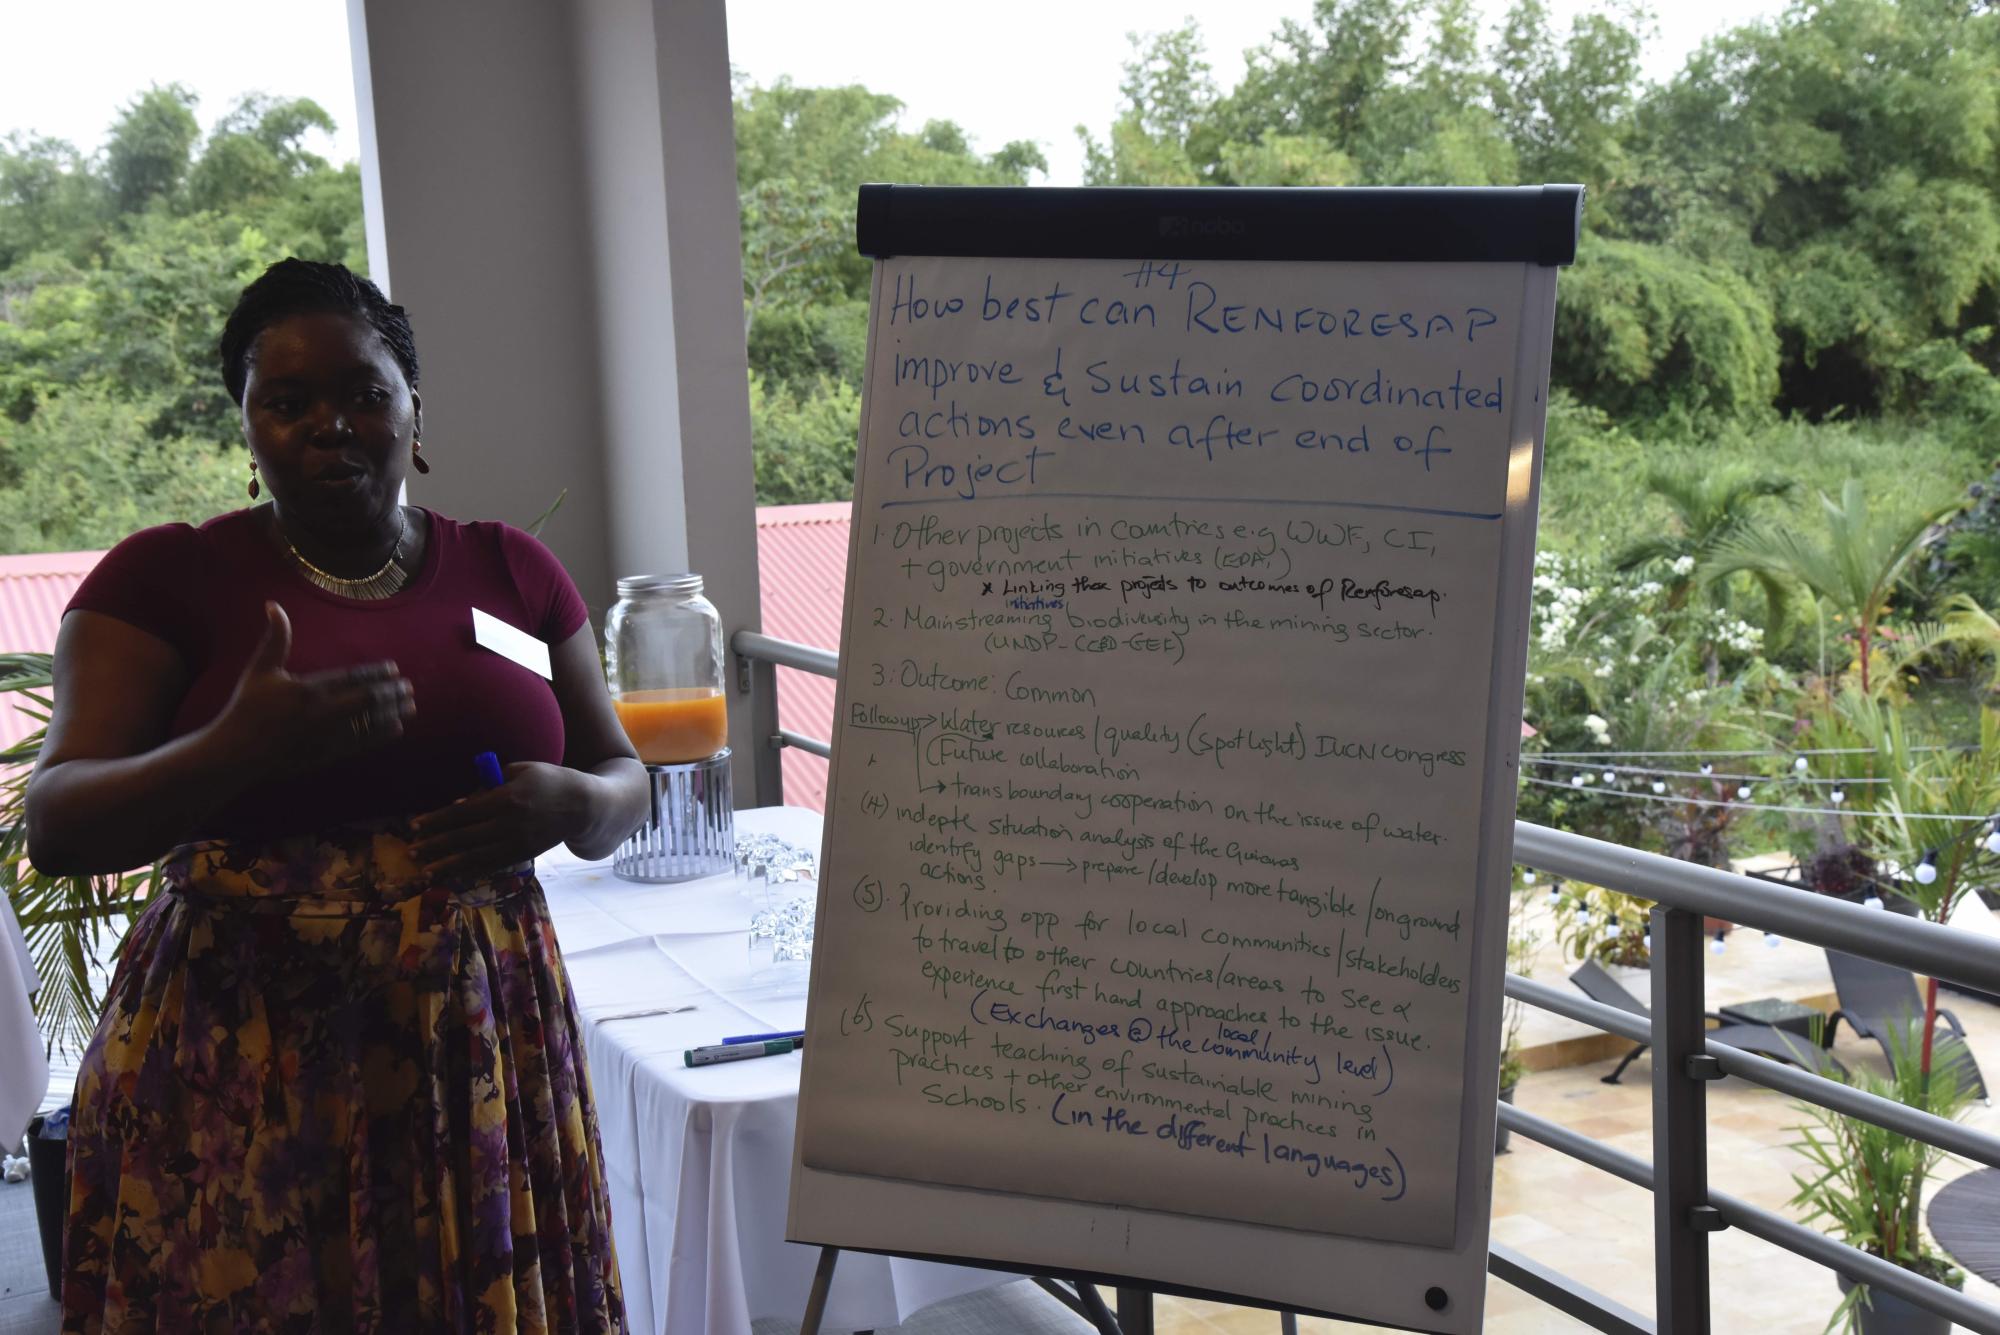 nobo
#4
How best can RENFORESAP
improve & Sustain coordinated
actions even after end of
Project
1. Other projects in countries e.g WWF, CI,
+ government initiatives (EPA,)
x Linking these projects to outcomes of Renforesap.
initiatives
2. Mainstreaming biodiversity in the mining sector.
(UNDP-CCBD-GEF)
3: Outcome: Common
Followup> Water resources/quality (spotlight) IUCN Congress
(Future collaboration
→ transboundary cooperation on the issue of water.
(4) indepth situation analysis of the Guianas
identify gaps → prepare/develop more tangible/onground
actions.
(5). Providing opp for local communities/stakeholders
to travel to other countries/areas to see &
experience first hand approaches to the issue.
(Exchanges @ the local/community level)
(6) Support teaching of sustainable mining
practices + other environmental practices in
Schools. (in the different languages)